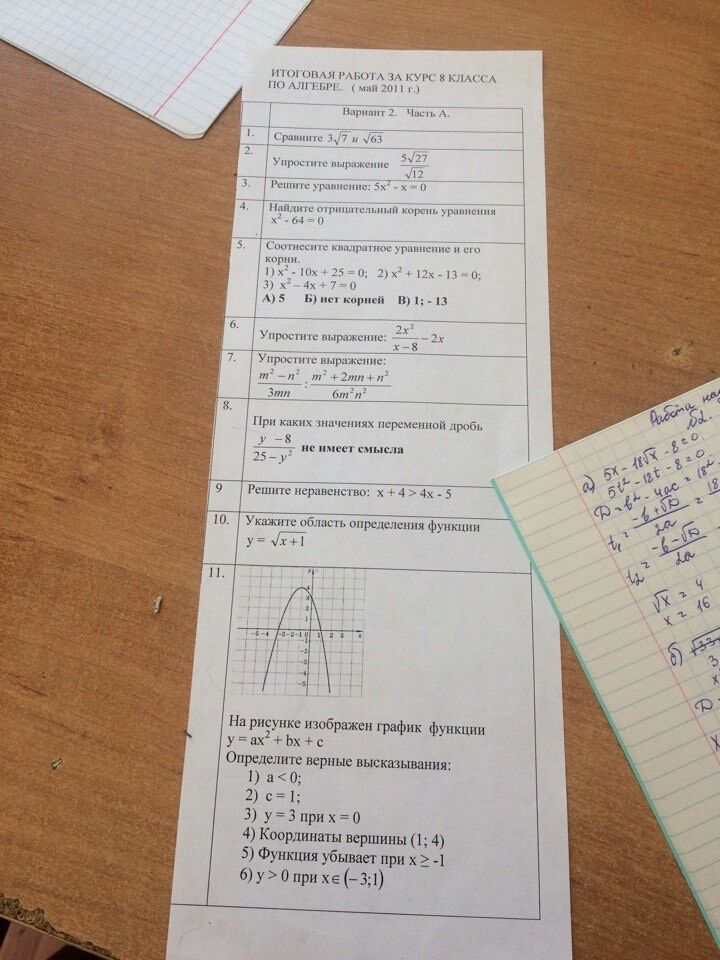 ИТОГОВАЯ РАБОТА ЗА КУРС 8 КЛАССА
ПО АЛГЕБРЕ. ( май 2011 г.)
Вариант 2. Часть А.
1. Сравните 3√7 и √63
2. Упростите выражение 5√27/√12
3. Решите уравнение: 5x² - x = 0
4. Найдите отрицательный корень уравнения
x² - 64 = 0
5. Соотнесите квадратное уравнение и его
корни.
1) x² - 10x + 25 = 0; 2) x² + 12x - 13 = 0;
3) x² – 4x + 7 = 0
А) 5 Б) нет корней В) 1; - 13
6. Упростите выражение: 2x²/(x – 8) – 2x
7. Упростите выражение:
(m² – n²)/3mn : (m² + 2mn + n²)/6m²n²
8. При каких значениях переменной дробь
(y – 8)/(25 – y²) не имеет смысла
9 Решите неравенство: x + 4 > 4x - 5
10. Укажите область определения функции
y = √(x+1)
11.
На рисунке изображен график функции
y = ax² + bx + c
Определите верные высказывания:
1) a < 0;
2) c = 1;
3) y = 3 при x = 0
4) Координаты вершины (1; 4)
5) Функция убывает при x ≥ -1
6) y > 0 при x∈ (– 3;1)
Работа
а) 5x - 18√x - 8 = 0
5t² - 18t - 8 = 0
D = b² - 4ac = 18²
t₁ = (-b + √D)/2a = 18
t₂ = (-b - √D)/2a
√x = 4
x = 16
б)
D =